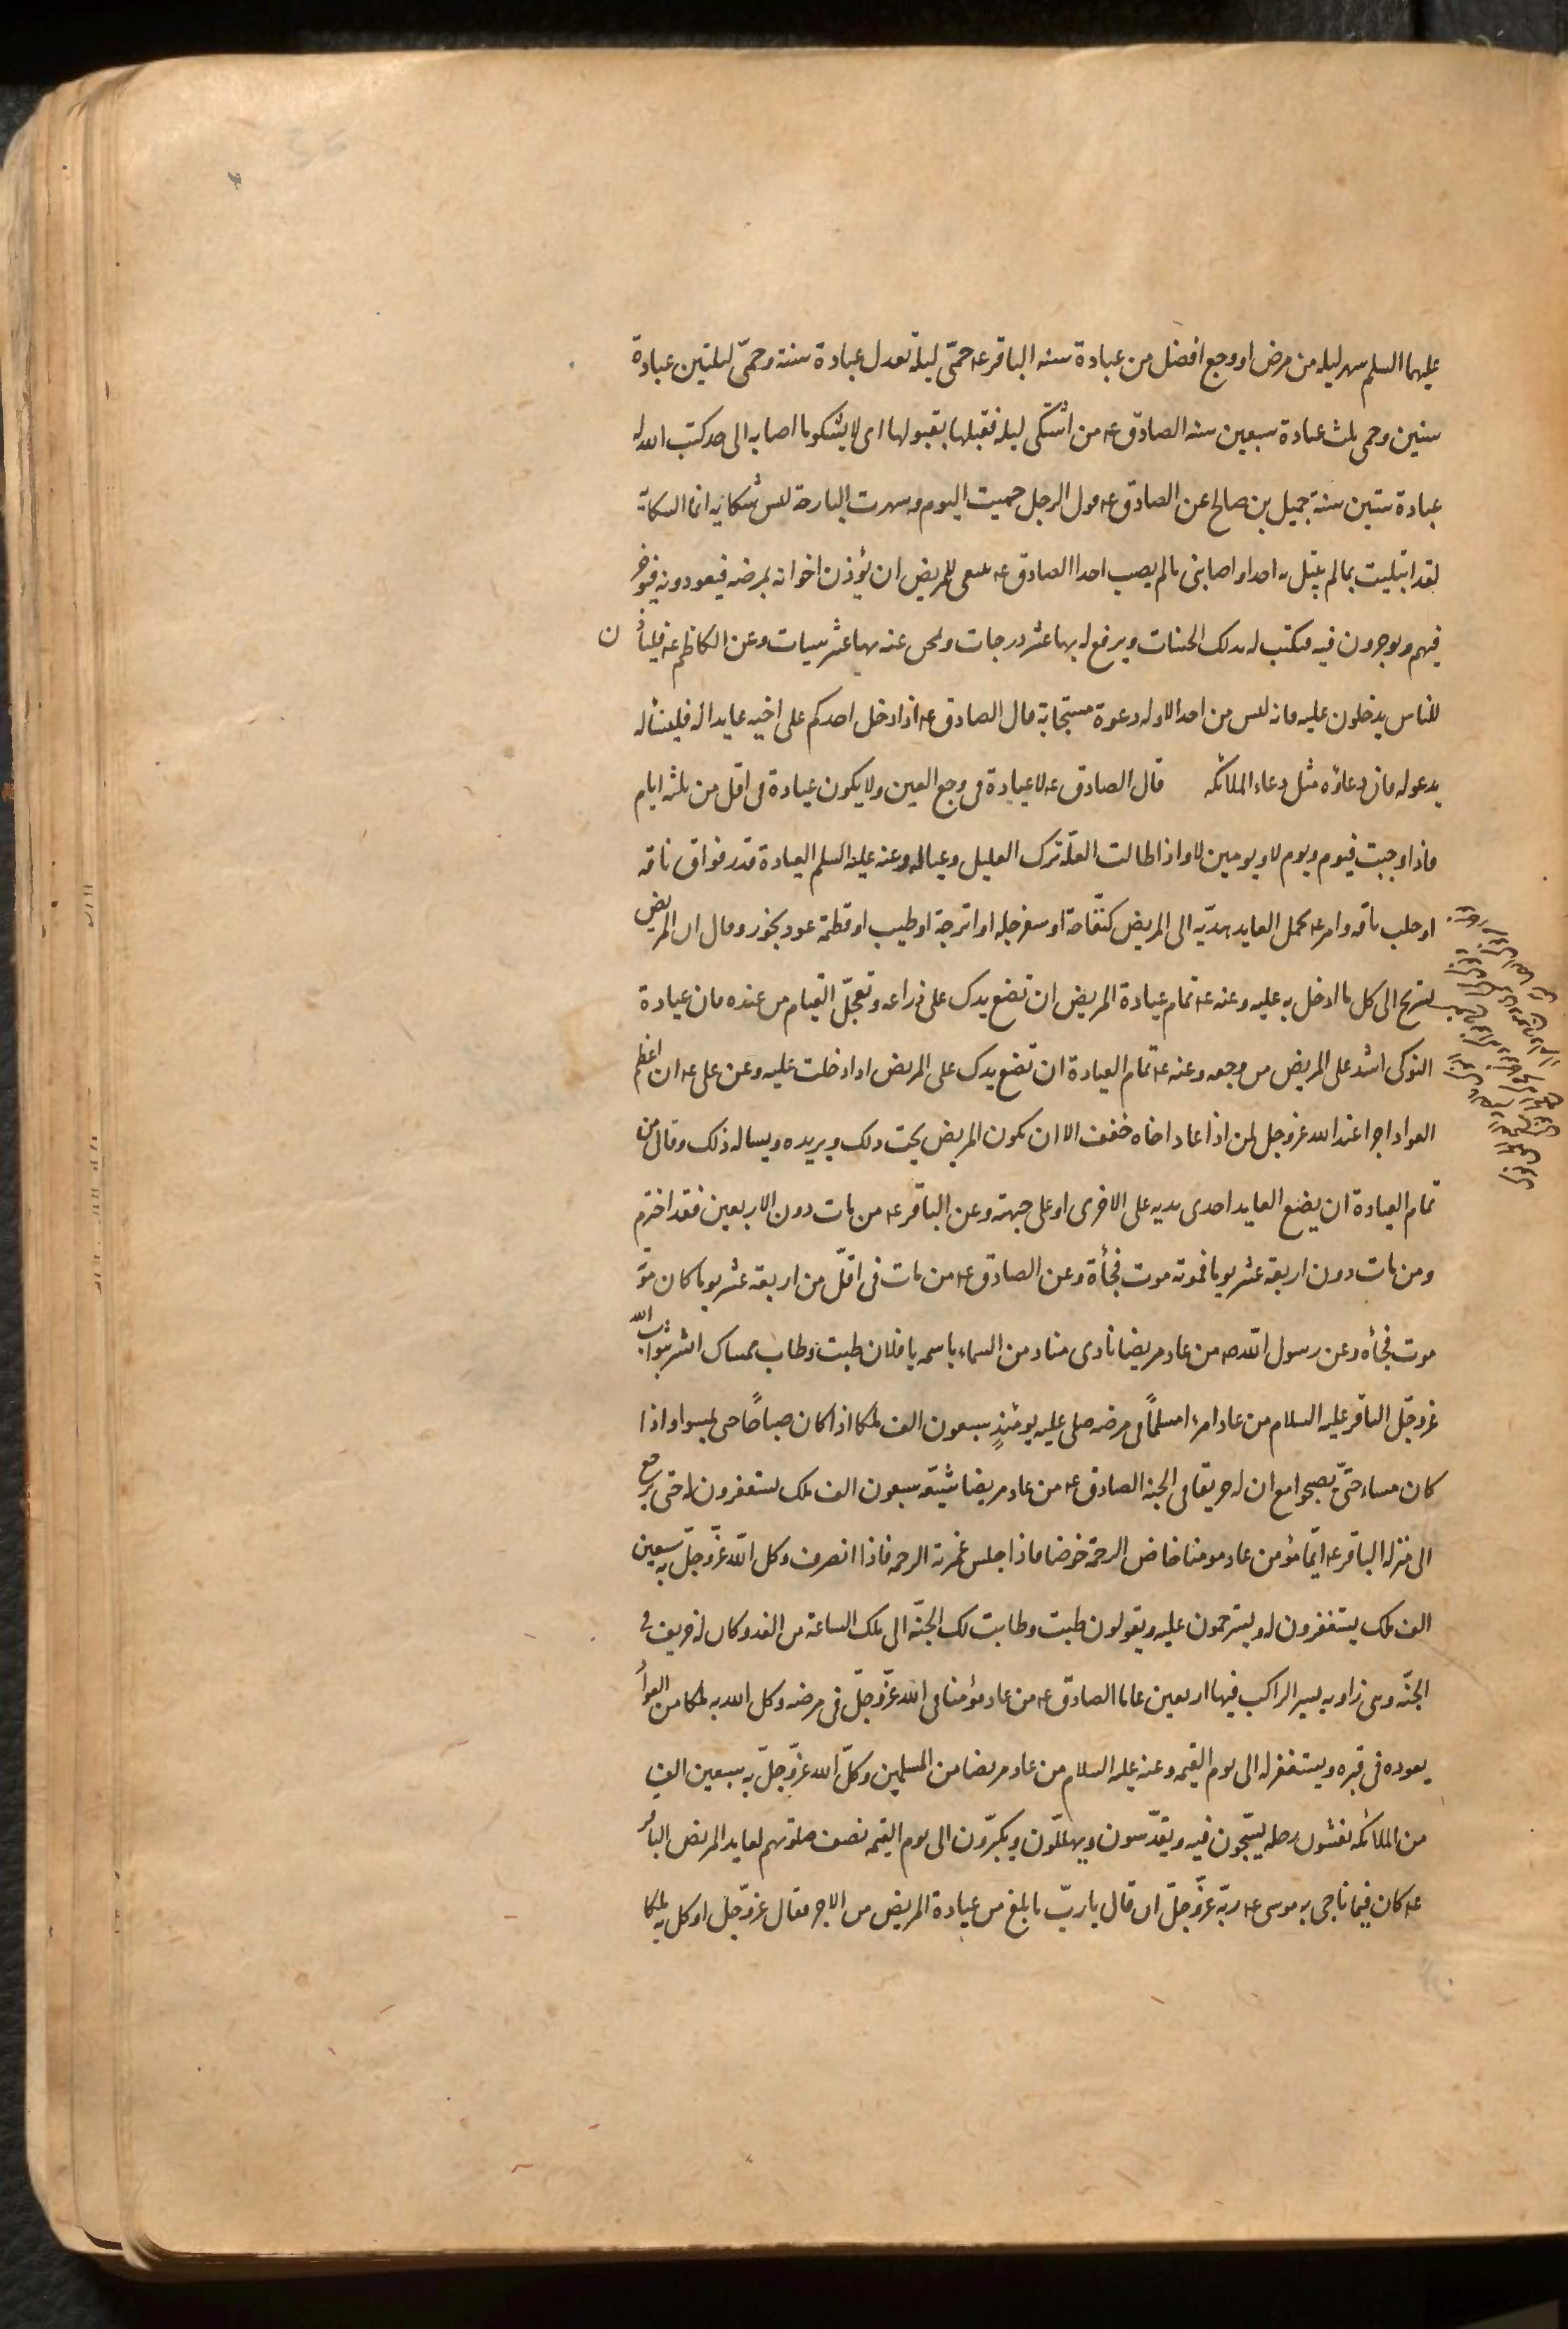 عليهما السلم سهر ليله من مرض او وجع افضل من عبادة سنه الباقر عه حمّى ليلة تعدل عبادة سنة وحمّى ليلتين عبادة
سنين وحمى ثلث عبادة سبعين سنه الصادق عه من اشتكى ليلة فقبلها بقبولها اى لا يشكو ما اصابه الى احد كتب الله له
عبادة ستين سنة جميل بن صالح عن الصادق عه قول الرجل حميت اليوم وسهرت البارحة ليس شكايه انما الشكاية
لقد ابتليت بما لم يبتل به احد او اصابنى ما لم يصب احدا الصادق عه ينبغى للمريض ان يؤذن اخوانه بمرضه فيعودونه فيوجر
فيهم ويوجرون فيه فيكتب له بذلك الحسنات ويرفع له بها عشر درجات ويمحى عنه بها عشر سيات وعن الكاظم عه فليأذن
للناس يدخلون عليه فانه ليس من احد الا وله دعوة مستجابة قال الصادق عه اذا دخل احدكم على اخيه عايدا له فليسأله
يدعو له فان دعاؤه مثل دعاء الملائكه قال الصادق عه لا عيادة فى وجع العين ولا يكون عيادة فى اقل من ثلثه ايام
فاذا وجبت فيوم ويوم لا ويومين لا واذا طالت العلّة ترك العليل وعياله وعنه عليه السلم العيادة قدر فواق ناقه
او حلب ناقه وامر عه بحمل العايد هديّه الى المريض كتفّاحة او سفرجله او اترجة او طيب او قطعة عود بخور وقال ان المريض
يستريح الى كل ما ادخل به عليه وعنه عه تمام عيادة المريض ان تضع يدك على ذراعه وتعجّل القيام من عنده فان عيادة
النوكى اشد على المريض من وجعه وعنه عه تمام العيادة ان تضع يدك على المريض اذا دخلت عليه وعن على عه ان اعظم
العواد اجرا عند الله عز وجل لمن اذا عاد اخاه خفف الا ان يكون المريض يحب ذلك ويريده ويساله ذلك وقال من
تمام العيادة ان يضع العايد احدى يديه على الاخرى او على جبهته وعن الباقر عه من مات دون الاربعين فقد اخترم
ومن مات دون اربعة عشر يوما فموته موت فجأة وعن الصادق عه من مات فى اقلّ من اربعة عشر يوما كان موته
موت فجأه وعن رسول الله صه من عاد مريضا نادى مناد من السماء باسمه يا فلان طبت وطاب ممشاك ابشر بثواب الله
عز وجلّ الباقر عليه السلام من عاد امرءا مسلمًا فى مرضه صلى عليه يومئذٍ سبعون الف ملكا اذا كان صباحًا حتى يمسوا واذا
كان مساء حتّى يصبحوا مع ان له خريفا فى الجنه الصادق عه من عاد مريضا شيّعه سبعون الف ملك يستغفرون له حتى يرجع
الى منزله الباقر عه ايّما مؤمن عاد مومنا خاض الرحمة خوضا فاذا جلس غمرته الرحمه فاذا انصرف وكل الله عزّ وجلّ به سبعين
الف ملك يستغفرون له ويسترحمون عليه ويقولون طبت وطابت لك الجنّه الى تلك الساعة من الغد وكان له خريف فى
الجنّه وهى زاويه يسير الراكب فيها اربعين عاما الصادق عه من عاد مؤمنا فى الله عزّ وجلّ فى مرضه وكل الله به ملكا من العواد
يعوده فى قبره ويستغفر له الى يوم القيمه وعنه عليه السلام من عاد مريضا من المسلمين وكلّ الله عزّ وجلّ به سبعين الف
من الملائكه يغشون رحله يسبّحون فيه ويقدّسون ويهلّلون ويكبّرون الى يوم القيمه نصف صلوتهم لعايد المريض الباقر
عه كان فيما ناجى به موسى عه ربّه عزّ وجلّ ان قال يا ربّ ما بلغ من عيادة المريض من الاجر فقال عزّ وجلّ اوكل به ملكا